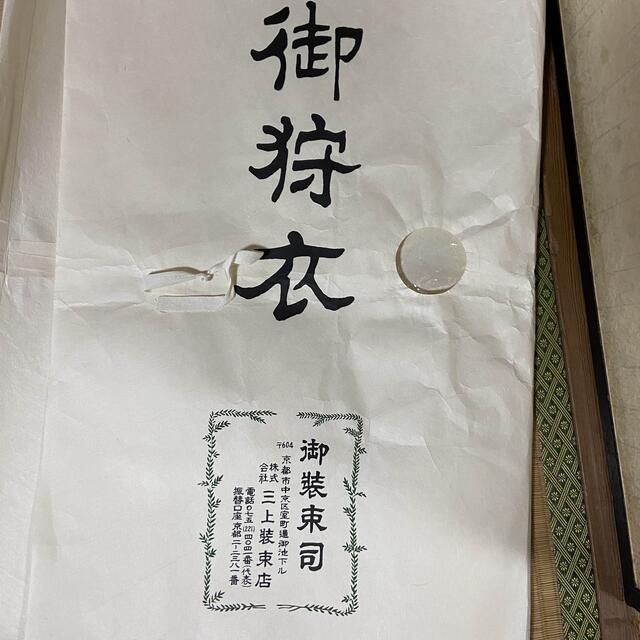 御狩衣
御装束司
〒604 京都市中京区室町通御池下ル
株式会社 三上装束店
電話〇七五(221)
振替口座京都二-二三八一番